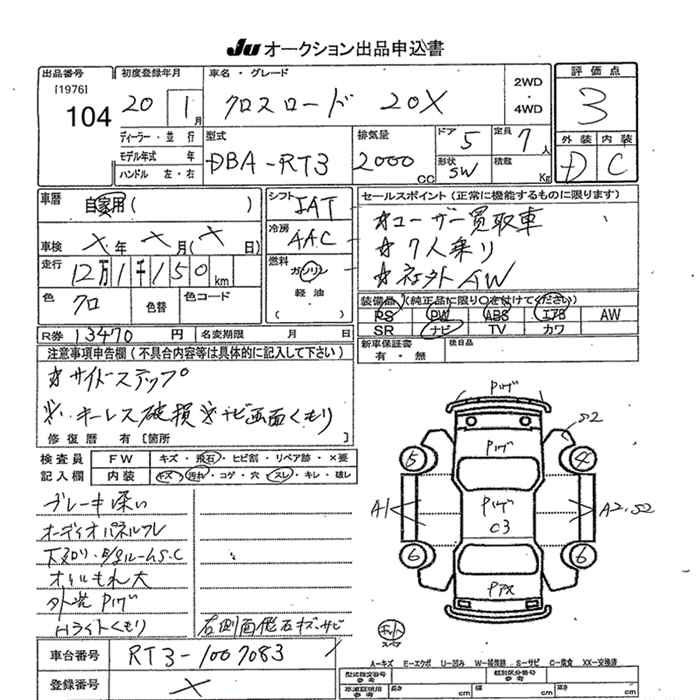 JU オークション出品申込書
出品番号
[1976]
104
初度登録年月
20 1月
車名・グレード
クロスロード 20X
2WD
・
4WD
評価点
3
外装 内装
D C
ディーラー・並行
モデル年式 年
ハンドル 左・右
型式
DBA-RT3
排気量
2000 CC
ドア 5
形状 SW
定員 7人
積載 Kg
車歴
自家用( )
車検 X年 X月(X日)
走行
12万1千150km
色
クロ
色替
色コード
シフト IAT
冷房 AAC
燃料
ガソリン
軽油
( )
セールスポイント(正常に機能するものに限ります)
☆ユーザー買取車
☆7人乗り
☆社外AW
装備品(純正品に限り○を付けてください)
PS PW ABS エアB AW
SR ナビ TV カワ
新車保証書
有・無
後日品
R券 13470 円
名変期限 月 日
注意事項申告欄(不具合内容等は具体的に記入して下さい)
☆サイドステップ
※キーレス破損 ※ナビ画面くもり
修復歴 有[箇所 ]
検査員
記入欄
FW キズ・飛石・ヒビ割・リペア跡・×要
内装 キズ・汚れ・コゲ・穴・スレ・キレ・破レ
ブレーキ深い
オーディオパネルワレ
下ヌリ・E/gルームS.C
オイルもれ大
外装Pハゲ
Hライトくもり
右側面飛石キズ・サビ
Pハゲ
Pハゲ
Pハゲ
C3
S2
5
4
A1
A2.S2
6
6
車台番号 RT3-1007083
登録番号 X
A-キズ E-エクボ U-凹み W-補修跡 S-サビ C-腐食 XX-交換済
型式指定番号
参考
類別区分番号
参考
長さ cm
cm
cm